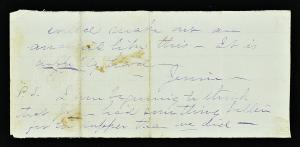 could make out an
answer like this – It is
– Jennie –
P.S. I am beginning to think
that you had something better
for supper than we did –